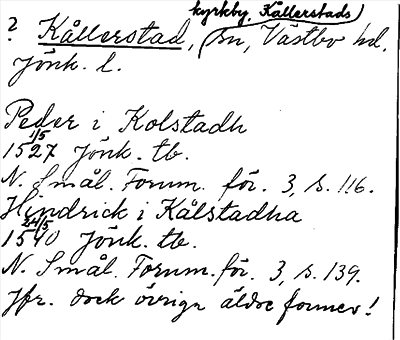 kyrkby, Kållerstads
? Kållerstad, sn, Västbo hd,
Jönk. l.
Peder i Kolstadh
1/5
1527 Jönk. tb.
N. Smål. Fornm. för. 3, s. 116.
Hindrick i Kålstadha
24/5
1540 Jönk. tb.
N. Smål. Fornm. för. 3, s. 139.
Jfr. dock övriga äldre former!